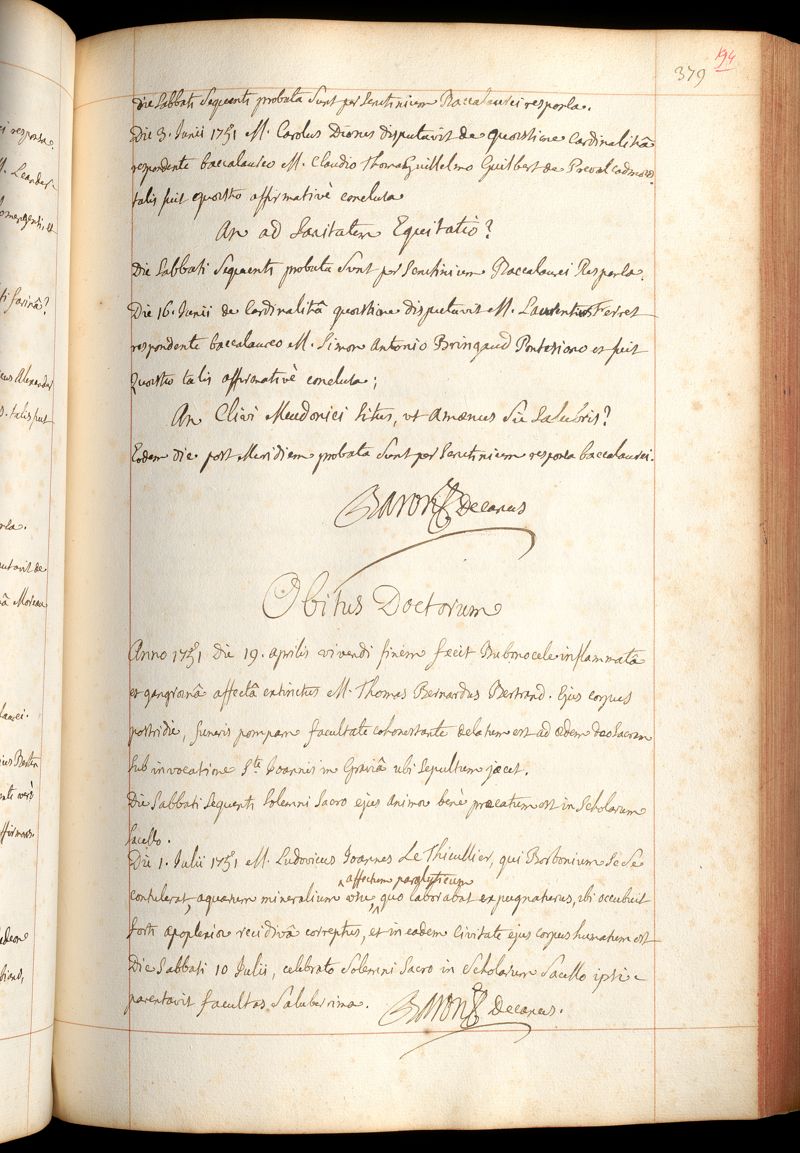 194
379
die Sabbati Sequenti probata sunt per Scrutinium Baccalaurei responsa.
Die 3. Junii 1751 M. Carolus Dionis disputavit de quæstione Cardinalitiâ
respondente baccalaureo M. Claudio Thoma Guillelmo Guilbert de Preval
talis fuit quæstio affirmativè conclusa
An ad Sanitatem Equitatio?
Die Sabbati Sequenti probata sunt per Scrutinium Baccalaurei Responsa.
Die 16. Junii de Cardinalitiâ quæstione disputavit M. Laurentius Ferret
respondente baccalaureo M. Simon Antonio Bringaud et fuit
Quæstio talis affirmativè conclusa;
An Clivi Meudonici situs, ut amœnus sic Salubris?
Eodem die post Meridiem probata sunt per Scrutinium responsa baccalaurei.
Baron Decanus
Obitus Doctorum
Anno 1751 Die 19. aprilis vivendi finem fæcit Bubonocele inflammatâ
et gangrœnâ affectâ extinctus M. Thomas Bernardus Bertrand. Ejus corpus
postridie, funeris pompam facultate cohonestante delatum est ad ædem deo Sacram
sub invocatione Sti. Joannis in Graviâ ubi sepultum jacet.
Die Sabbati Sequenti Solemni Sacro ejus animæ benè præcatum est in Scholarum
Sacello.
Die 1. Julii 1751 M. Ludovicus Joannes Le Thieullier, qui Borbonium se se
affectum paralyticum
contulerat, aquarum mineralium usu, quo laborabat expugnaturus, ibi occubuit
forti apoplexia recidivâ correptus, et in eadem Civitate ejus corpus humatum est
Die Sabbati 10 Julii, celebrato Solemni Sacro in Scholarum Sacello ipsi
parentavit facultas Saluberrima. Baron Decanus.